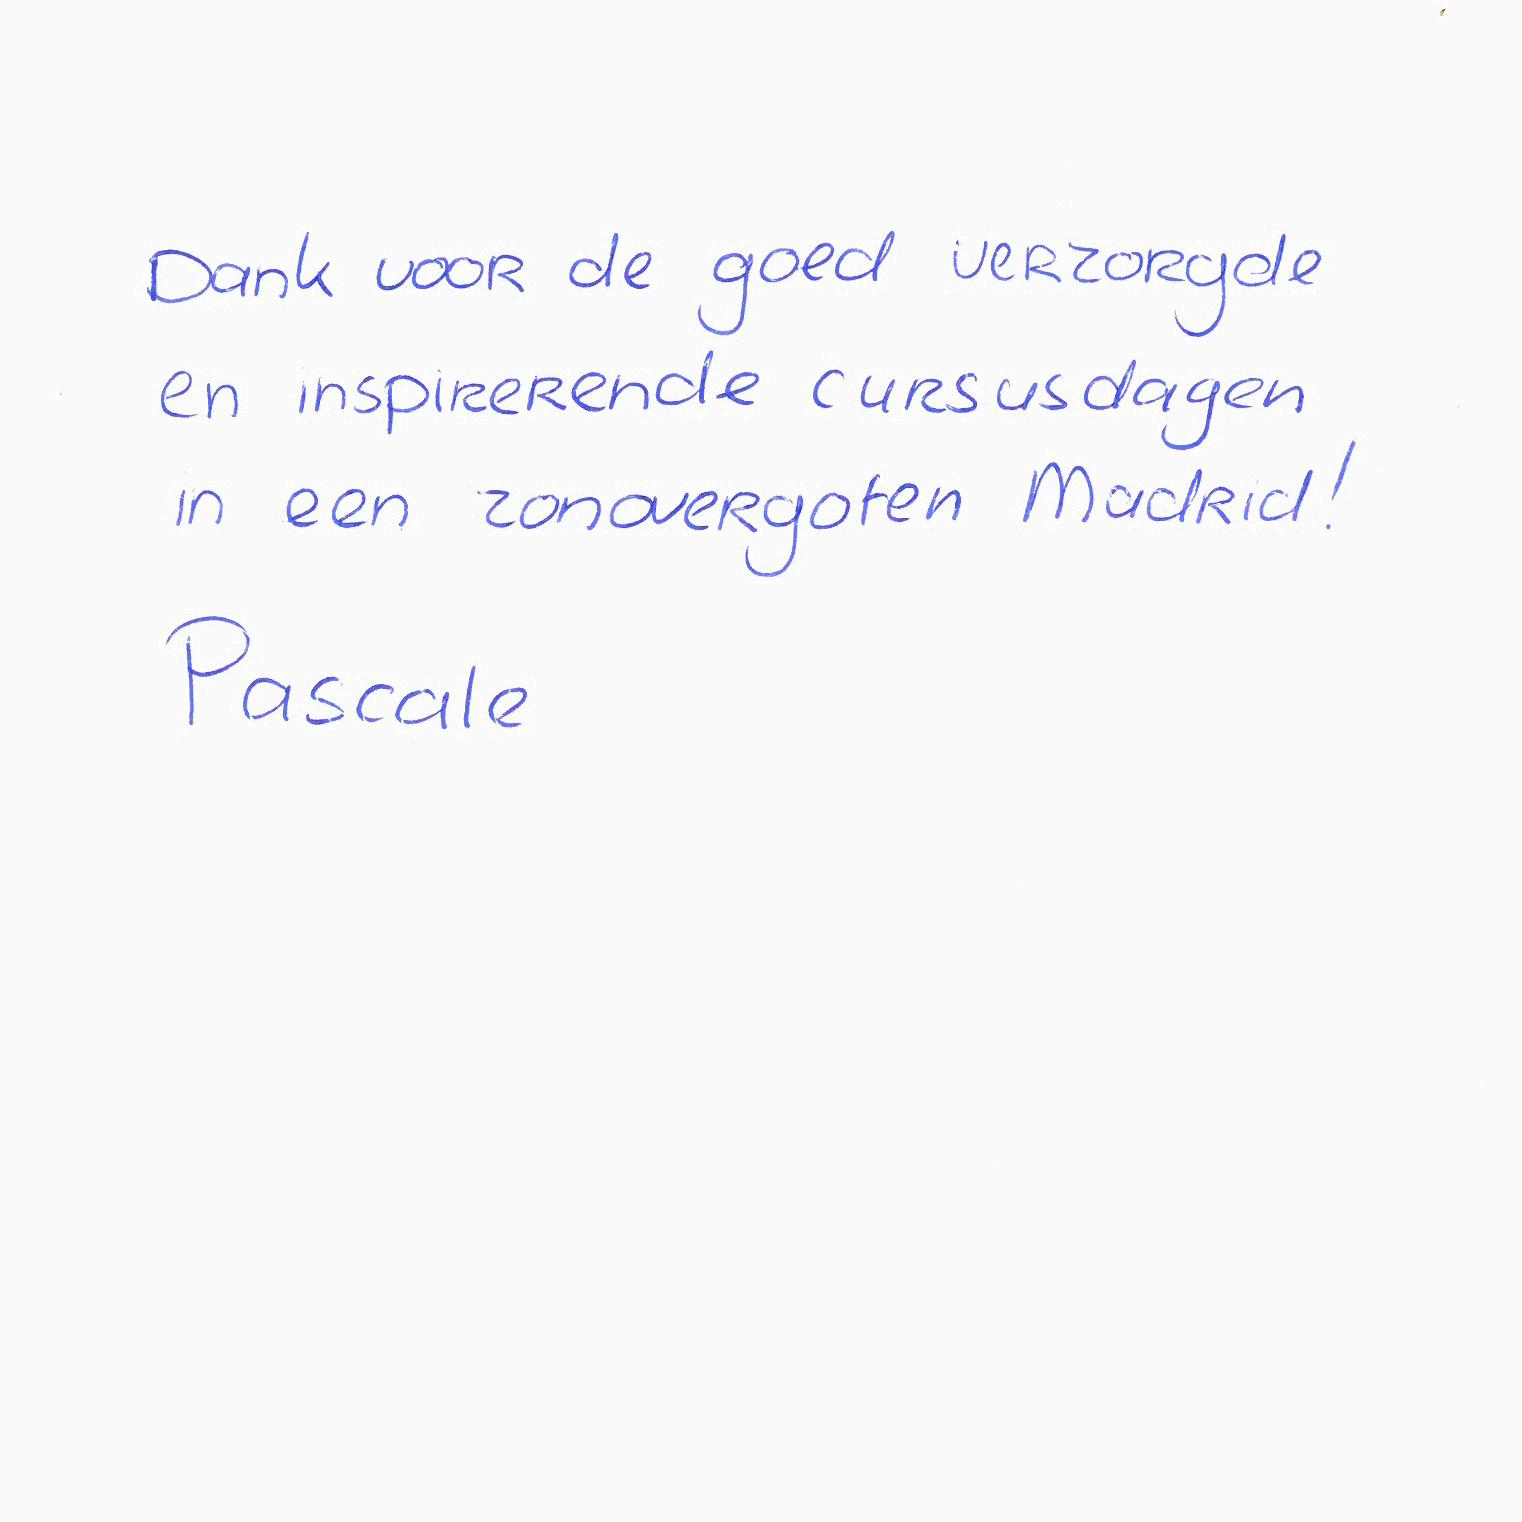 Dank voor de goed verzorgde
en inspirerende cursusdagen
in een zonovergoten Madrid!
Pascale